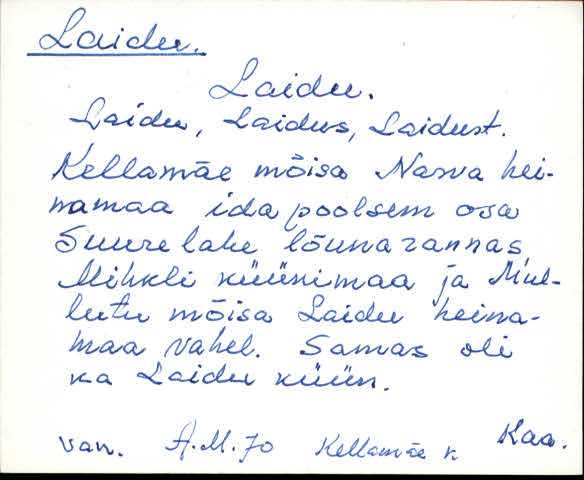 Laidu.
Laidu.
Laidu, Laidus, Laidust.
Kellamäe mõisa Nasva hei-
namaa ida poolsem osa
Suurelahe lõunarannas
Mihkli küünimaa ja Mul-
lutu mõisa Laidu heina-
maa vahel. Samas oli
ka Laidu küün.
van. A.M.70 Kellamäe k Kaa.